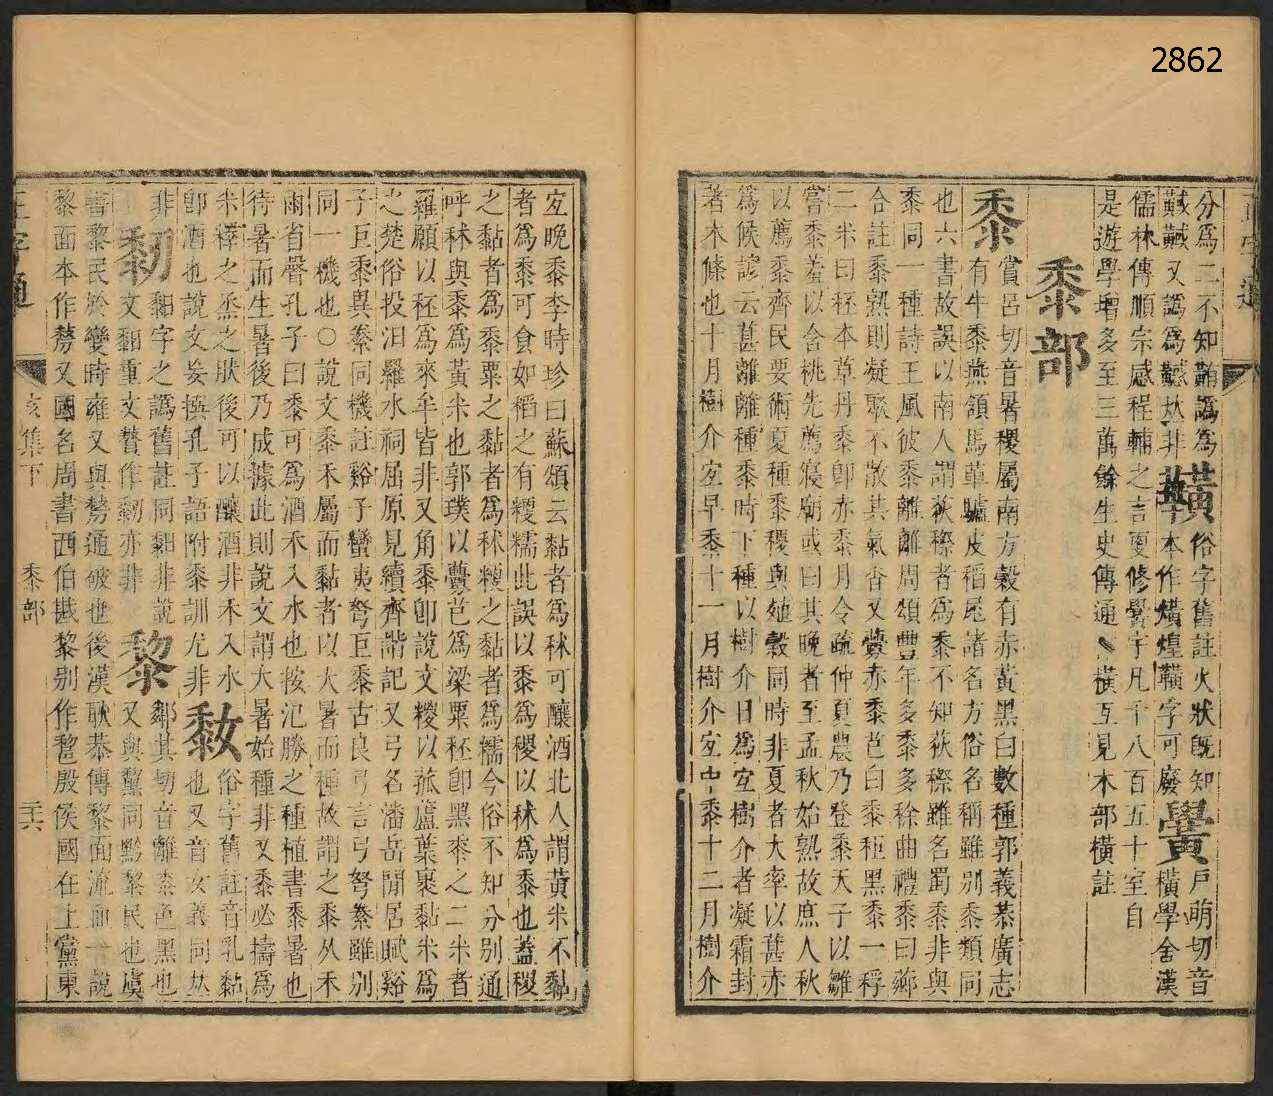 2862
分爲二不知䵎譌爲黃俗字舊註火狀旣知黌戶萌切音
又譌爲𠀤非本作熿煌字可廢橫學舍漢
儒林傳順宗感程輔之言更修黌宇凡千八百五十室自
是遊學增多至三萬餘生史傳通作橫互見木部橫註
黍部
黍賞呂切音暑稷屬南方穀有赤黃黑白數種郭義恭廣志
有牛黍燕頷馬革驢皮稻尾諸名方俗名稱雖別黍類同
也六書故誤以南人謂荻穄者爲黍不知荻穄雖名蜀黍非與
黍同一種詩王風彼黍離離周頌豐年多黍多稌曲禮黍曰薌
合註黍熟則凝聚不散其氣香又虋赤黍芑白黍秬黑黍一稃
二米曰秠本草丹黍卽赤黍月令疏仲夏農乃登黍天子以雛
嘗黍羞以含桃先薦寢廟或曰其晚者至孟秋始熟故庶人秋
以薦黍齊民要術夏種黍稷與稙穀同時非夏者大率以葚赤
爲候諺云葚離離種黍時下種以樹介日爲宐樹介者凝霜封
著木條也十月樹介宐早黍十一月樹介宐中黍十二月樹介
宐晚黍李時珍曰蘇頌云黏者爲秫可釀酒北人謂黃米不黏
者爲黍可食如稻之有稉糯此誤以黍爲稷以秫爲黍也蓋稷
之黏者爲黍粟之黏者爲秫稉之黏者爲糯今俗不知分別通
呼秫與黍爲黃米也郭璞以虋芑爲粱粟秠卽黑黍之二米者
羅願以秠爲來牟皆非又角黍卽說文糉以菰蘆葉裹黏米爲
之楚俗投汨羅水祠屈原見續齊諧記又弓名潘岳閒居賦谿
子巨黍異絭同機註谿子蠻夷弩巨黍古良弓言弓弩絭雖別
同一機也○說文黍禾屬而黏者以大暑而種故謂之黍从禾
雨省聲孔子曰黍可爲酒禾入水也按氾勝之種植書黍暑也
待暑而生暑後乃成據此則說文謂大暑始種非又黍必擣爲
米釋之烝之肰後可以釀酒非禾入水
卽酒也說文妄撰孔子語附黍訓尤非䵑俗字舊註音乳黏
也又音女義同𠀤
非䵒䵑字之譌舊註同䵑非說
文䵒重文䵑作䵒亦非黎鄰其切音離黍色黑也
又與黧同黔黎民也虞
書黎民於變時雍又與犂通破也後漢耿恭傳黎面流血說
黎面本作犂又國名周書西伯戡黎別作𨛫殷侯國在上黨東
正字通
亥集下
黍部